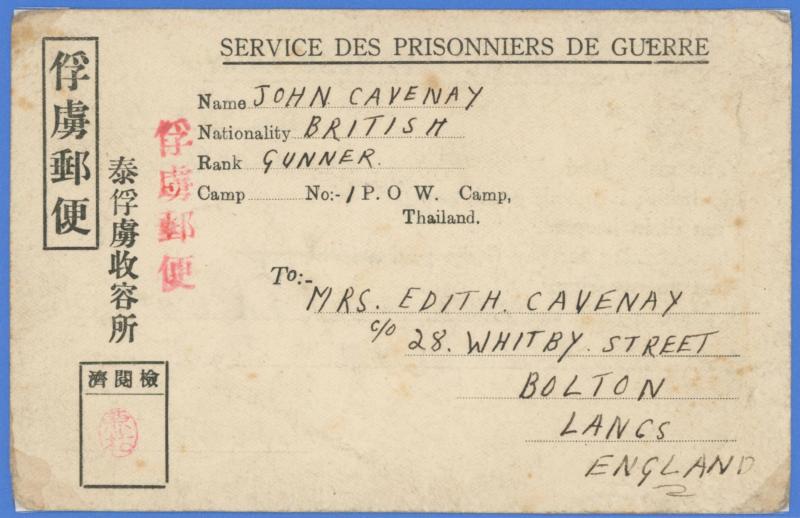 SERVICE DES PRISONNIERS DE GUERRE
俘虜郵便
泰俘虜收容所
俘虜郵便
Name JOHN CAVENAY
Nationality BRITISH
Rank GUNNER.
Camp No:-1 P. O W. Camp,
Thailand.
To:-
MRS. EDITH. CAVENAY
c/o 28. WHITBY. STREET
BOLTON
LANCS
ENGLAND
濟閱檢